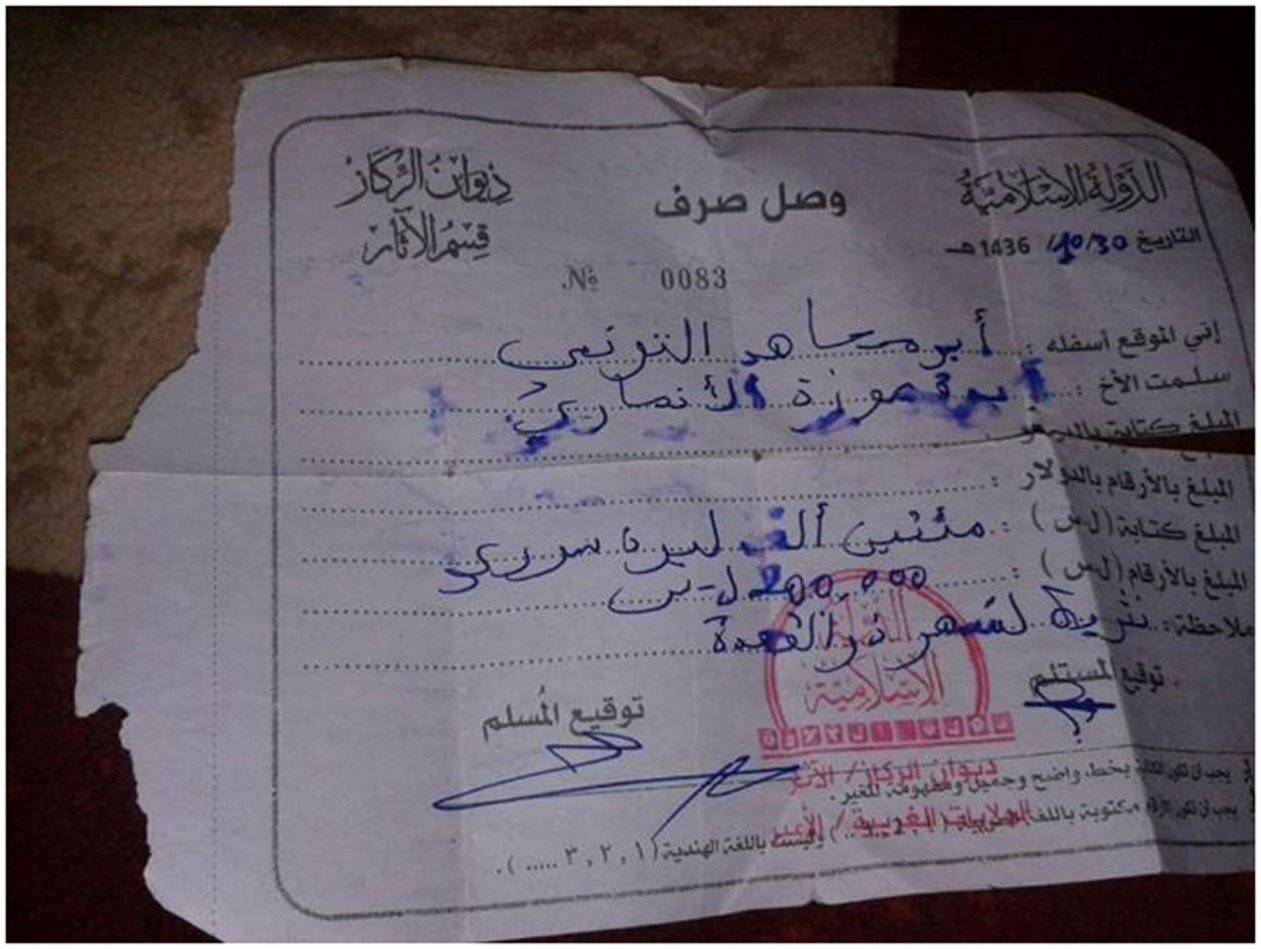 الدولة الإسلامية
وصل صرف
ديوان الركاز
قسم الآثار
التاريخ 10/30/ 1436 هـ
№ 0083
إني الموقع أسفله : أبو مجاهد التونسي
سلمت الأخ : الأنصاري
المبلغ كتابة
المبلغ بالأرقام بالدولار :
المبلغ كتابة (ل.س) : مئتين ألف ليرة سوري
المبلغ بالأرقام (ل.س) : 200,000 ل.س
ملاحظة : نثرية لشهر ذو القعدة
توقيع المستلم
توقيع المُسلم
الدولة
الإسلامية
ديوان الركاز / الآثار
الولايات الغربية /
يجب ان تكون الكتابة بخط واضح وجميل ومفهومة للغير.
يجب ان تكون الأرقام مكتوبة باللغة العربية ( 1 , 2 , 3 ...) وليست باللغة الهندية ( ١ , ٢ , ٣ ..... ).